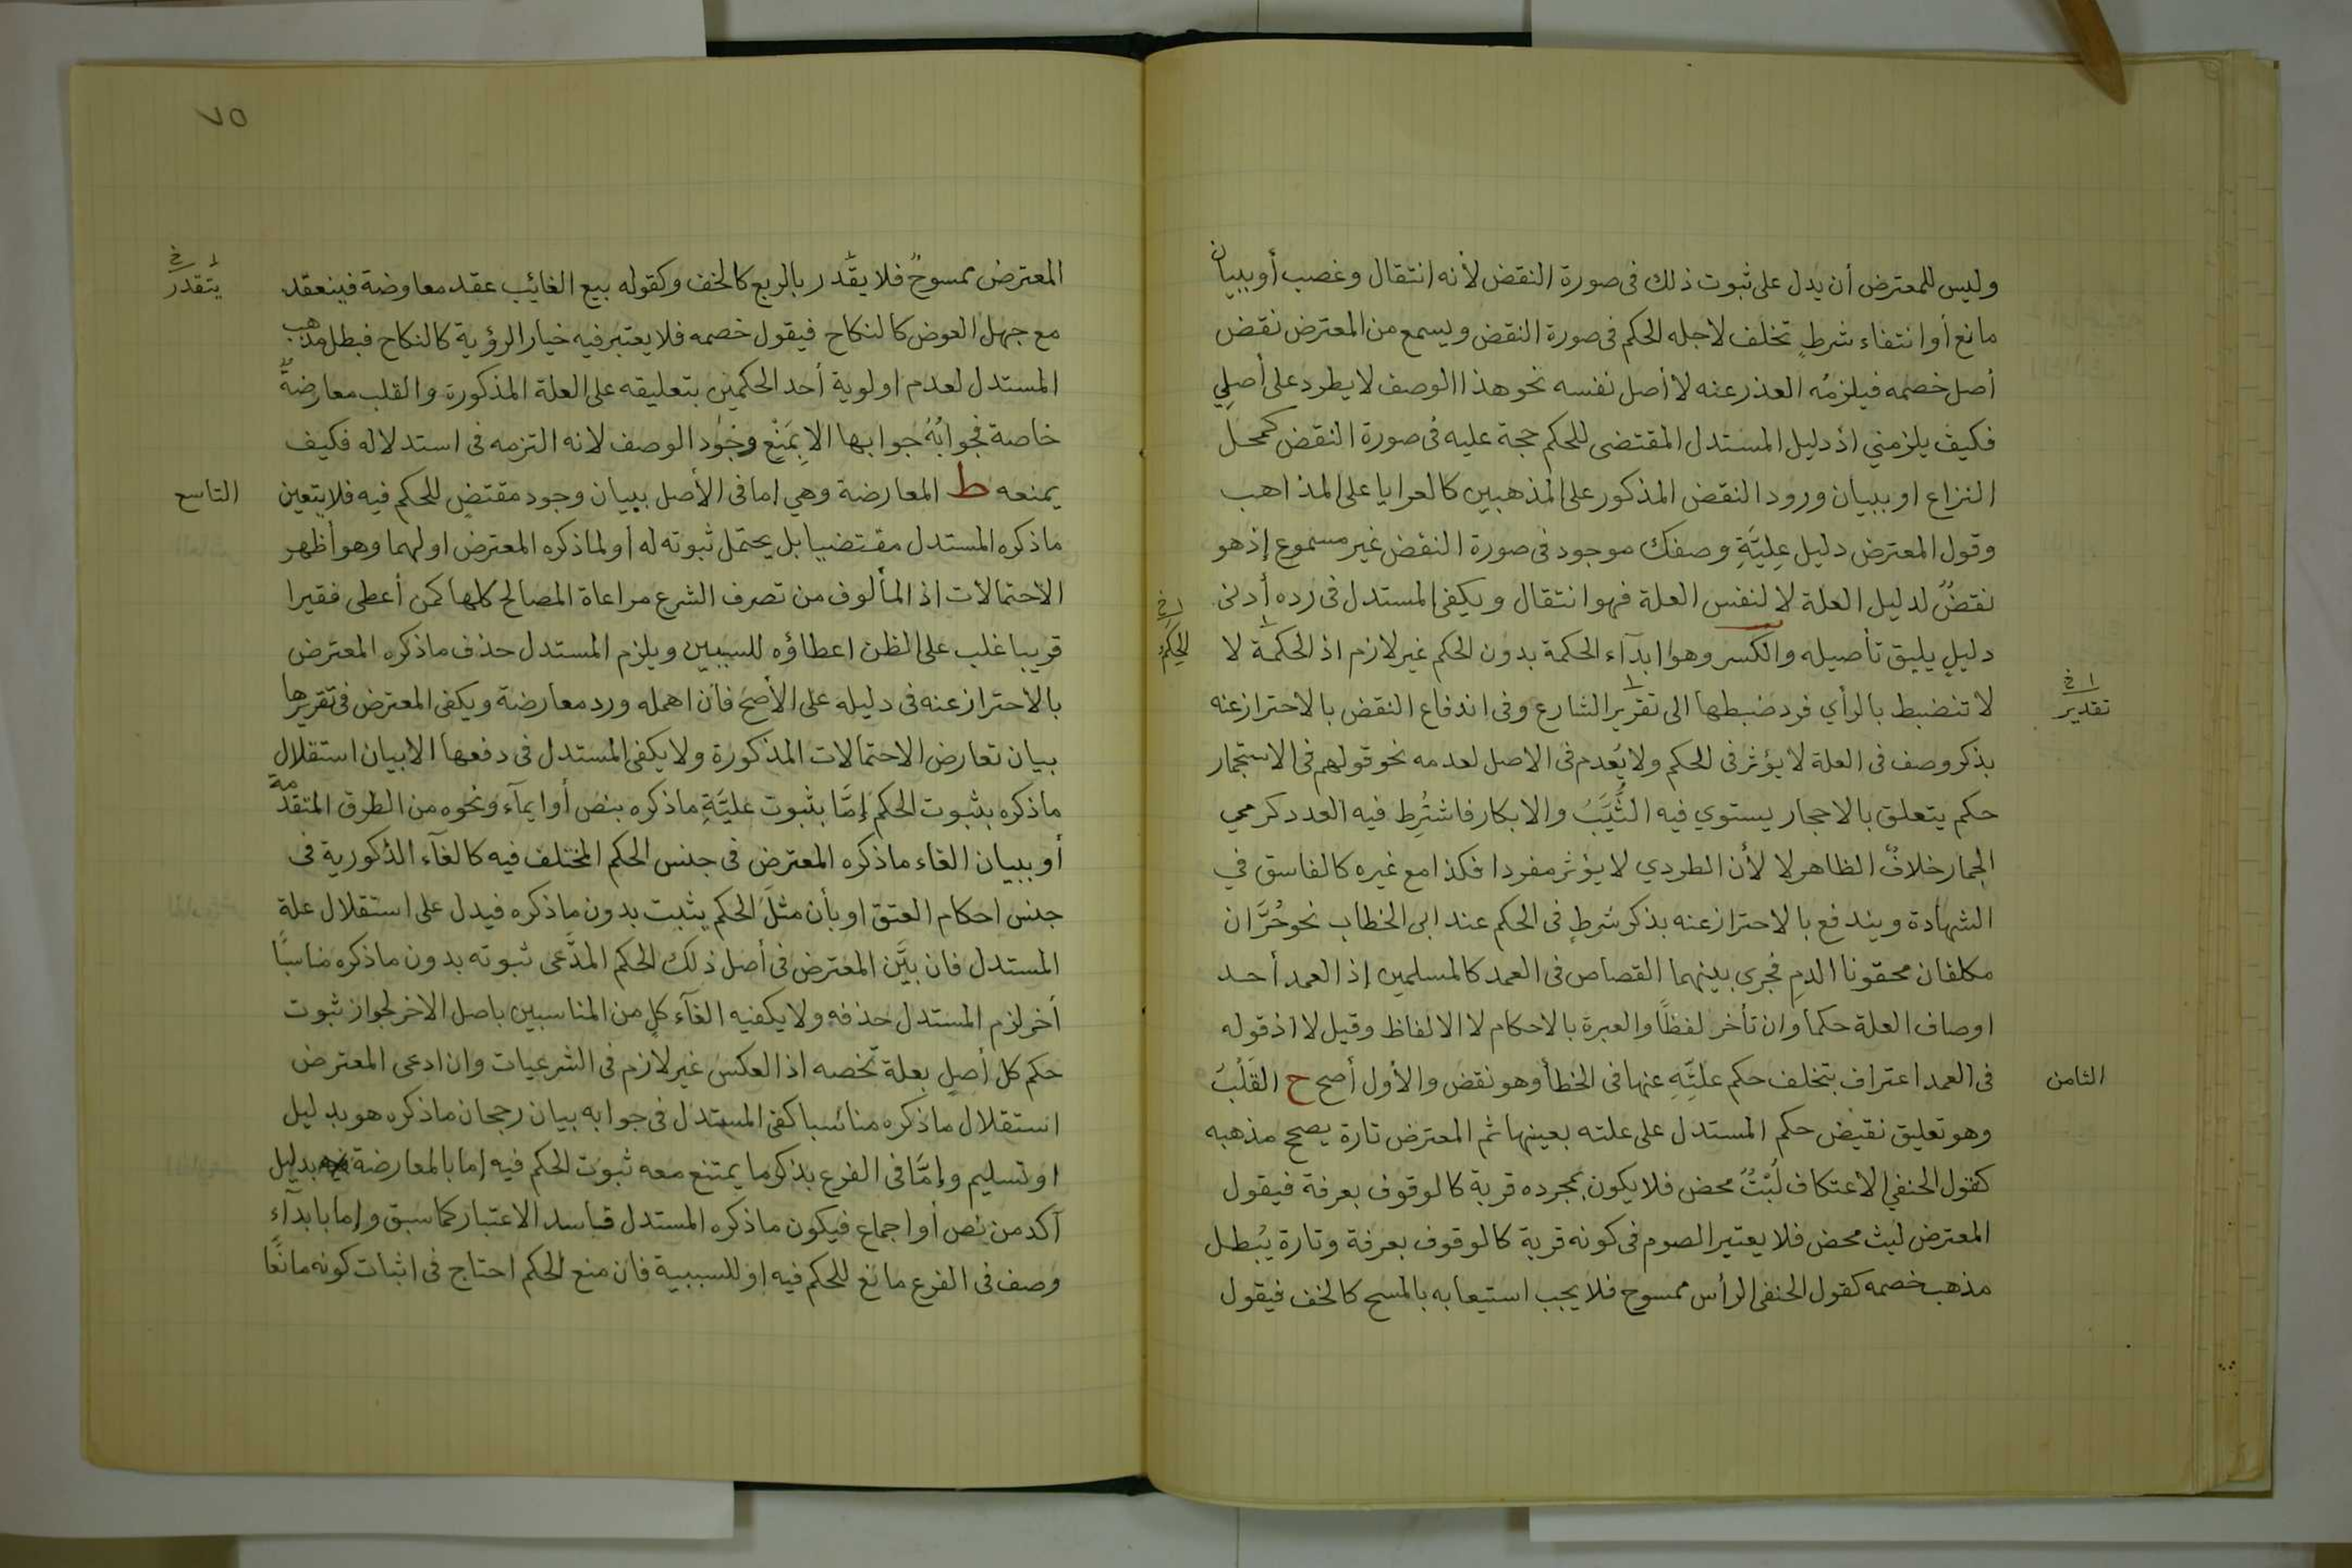 وليس للمعترض أن يدل على ثبوت ذلك فى صورة النقض لأنه انتقال وغصب أو ببيان
مانع أو انتفاء شرطٍ تخلف لاجله الحكم فى صورة النقض ويسمع من المعترض نقض
أصل خصمه فيلزمُه العذر عنه لا أصل نفسه نحو هذا الوصف لا يطرد على أصلي
فكيف يلزمني اذ دليل المستدل المقتضى للحكم حجة عليه فى صورة النقض كمحل
النزاع او ببيان ورود النقض المذكور على المذهبين كالعرايا على المذاهب
وقول المعترض دليل عِليَّةِ وصفك موجود فى صورة النقض غير مسموع إذ هو
نقضٌ لدليل العلة لا لنفس العلة فهو انتقال ويكفى المستدل فى رده أدنى
دليلٍ يليق تأصيله والكسر وهو ابدآء الحكمة بدون الحكم غير لازم اذ الحكمة لا
الحِكَمُ
لا تنضبط بالرأي فرد ضبطها الى تقرير الشارع وفى اندفاع النقض بالاحتراز عنه
تقدير
بذكر وصف فى العلة لا يؤثر فى الحكم ولا يُعدم فى الاصل لعدمه نحو قولهم فى الاستجمار
حكم يتعلق بالاحجار يستوي فيه الثَّيِّبُ والابكار فاشتُرِط فيه العدد كرمي
الجمار خلافٌ الظاهر لا لأن الطردي لا يؤثر مفردا فكذا مع غيره كالفاسق في
الشهادة ويندفع بالاحتراز عنه بذكر شرطٍ فى الحكم عند ابى الخطاب نحو حُرَّان
مكلفان محقونا الدمِ فجرى بينهما القصاص فى العمد كالمسلمين إذ العمد أحد
اوصاف العلة حكما وان تأخر لفظًا والعبرة بالاحكام لا الالفاظ وقيل لا اذ قوله
فى العمد اعتراف بتخلف حكم علتِّهِ عنها فى الخطأ وهو نقض والأول أصح ح القَلْبُ
الثامن
وهو تعليق نقيض حكم المستدل على علته بعينها ثم المعترض تارة يصحح مذهبه
كقول الحنفي الاعتكاف لُبْثٌ محض فلا يكون بمجرده قربة كالوقوف بعرفة فيقول
المعترض لبث محض فلا يعتبر الصوم فى كونه قربة كالوقوف بعرفة وتارة يُبطل
مذهب خصمه كقول الحنفى الرأس ممسوح فلا يجب استيعابه بالمسح كالخف فيقول
٧٥
المعترض ممسوحٌ فلا يقَّدر بالربع كالخف وكقوله بيع الغائب عقد معاوضة فينعقد
يتقدر
مع جهل العوض كالنكاح فيقول خصمه فلا يعتبر فيه خيار الرؤية كالنكاح فبطل مذهب
المستدل لعدم اولوية أحد الحكمين بتعليقه على العلة المذكورة والقلب معارضةٌ
خاصة فجوابُهُ جوابها الا بِمَنْع وجُود الوصف لانه التزمه فى استدلاله فكيف
يمنعه ط المعارضة وهي اما فى الأصل ببيان وجود مقتضٍ للحكم فيه فلا يتعين
التاسع
ماذكره المستدل مقتضيا بل يحتمل ثبوته له أو لماذكره المعترض او لهما وهو أظهر
الاحتمالات اذ المألوف من تصرف الشرع مراعاة المصالح كلها كمن أعطى فقيرا
قريبا غلب على الظن اعطاؤه للسببين ويلزم المستدل حذف ماذكره المعترض
بالاحتراز عنه فى دليله على الأصح فان اهمله ورد معارضة ويكفى المعترض فى تقريرها
بيان تعارض الاحتمالات المذكورة ولا يكفى المستدل فى دفعها الا بيان استقلال
ماذكره بثبوت الحكم إمَّا بثبوت عليَّةِ ماذكره بنص أو ايمآء ونحوه من الطرق المتقدمة
أو ببيان الغاء ماذكره المعترض فى جنس الحكم المختلف فيه كالغآء الذكورية فى
جنس احكام العتق او بأن مثلَ الحكم يثبت بدون ماذكره فيدل على استقلال علة
المستدل فان بيَّن المعترض فى أصل ذلك الحكم المدَّعى ثبوته بدون ماذكره مناسبًا
أخر لزم المستدل حذفه ولا يكفيه الغآء كلٍ من المناسبين باصل الاخر لجواز ثبوت
حكم كل أصلٍ بعلة تخصه اذ العكس غير لازم فى الشرعيات وان ادعى المعترض
استقلال ماذكره مناسبا كفى المستدل فى جوابه بيان رجحان ماذكره هو بدليل
او تسليم وإمَّا فى الفرع بذكر ما يمتنع معه ثبوت الحكم فيه إما بالمعارضة بدليل
آكد من نص أو اجماع فيكون ماذكره المستدل فاسد الاعتبار كما سبق وإما بابدآء
وصف فى الفرع مانع للحكم فيه او للسببية فان منع الحكم احتاج فى اثبات كونه مانعًا